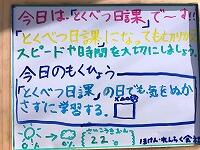 今日は、「とくべつ日課」で～す!!
「とくべつ日課」になってもわかりが
スピードや時間を大切にしましょう。
今日のもくひょう
「とくべつ日課」の日でも気をぬか
さずに学習する。
さいこうきおん
22℃
ほけん・れんらく